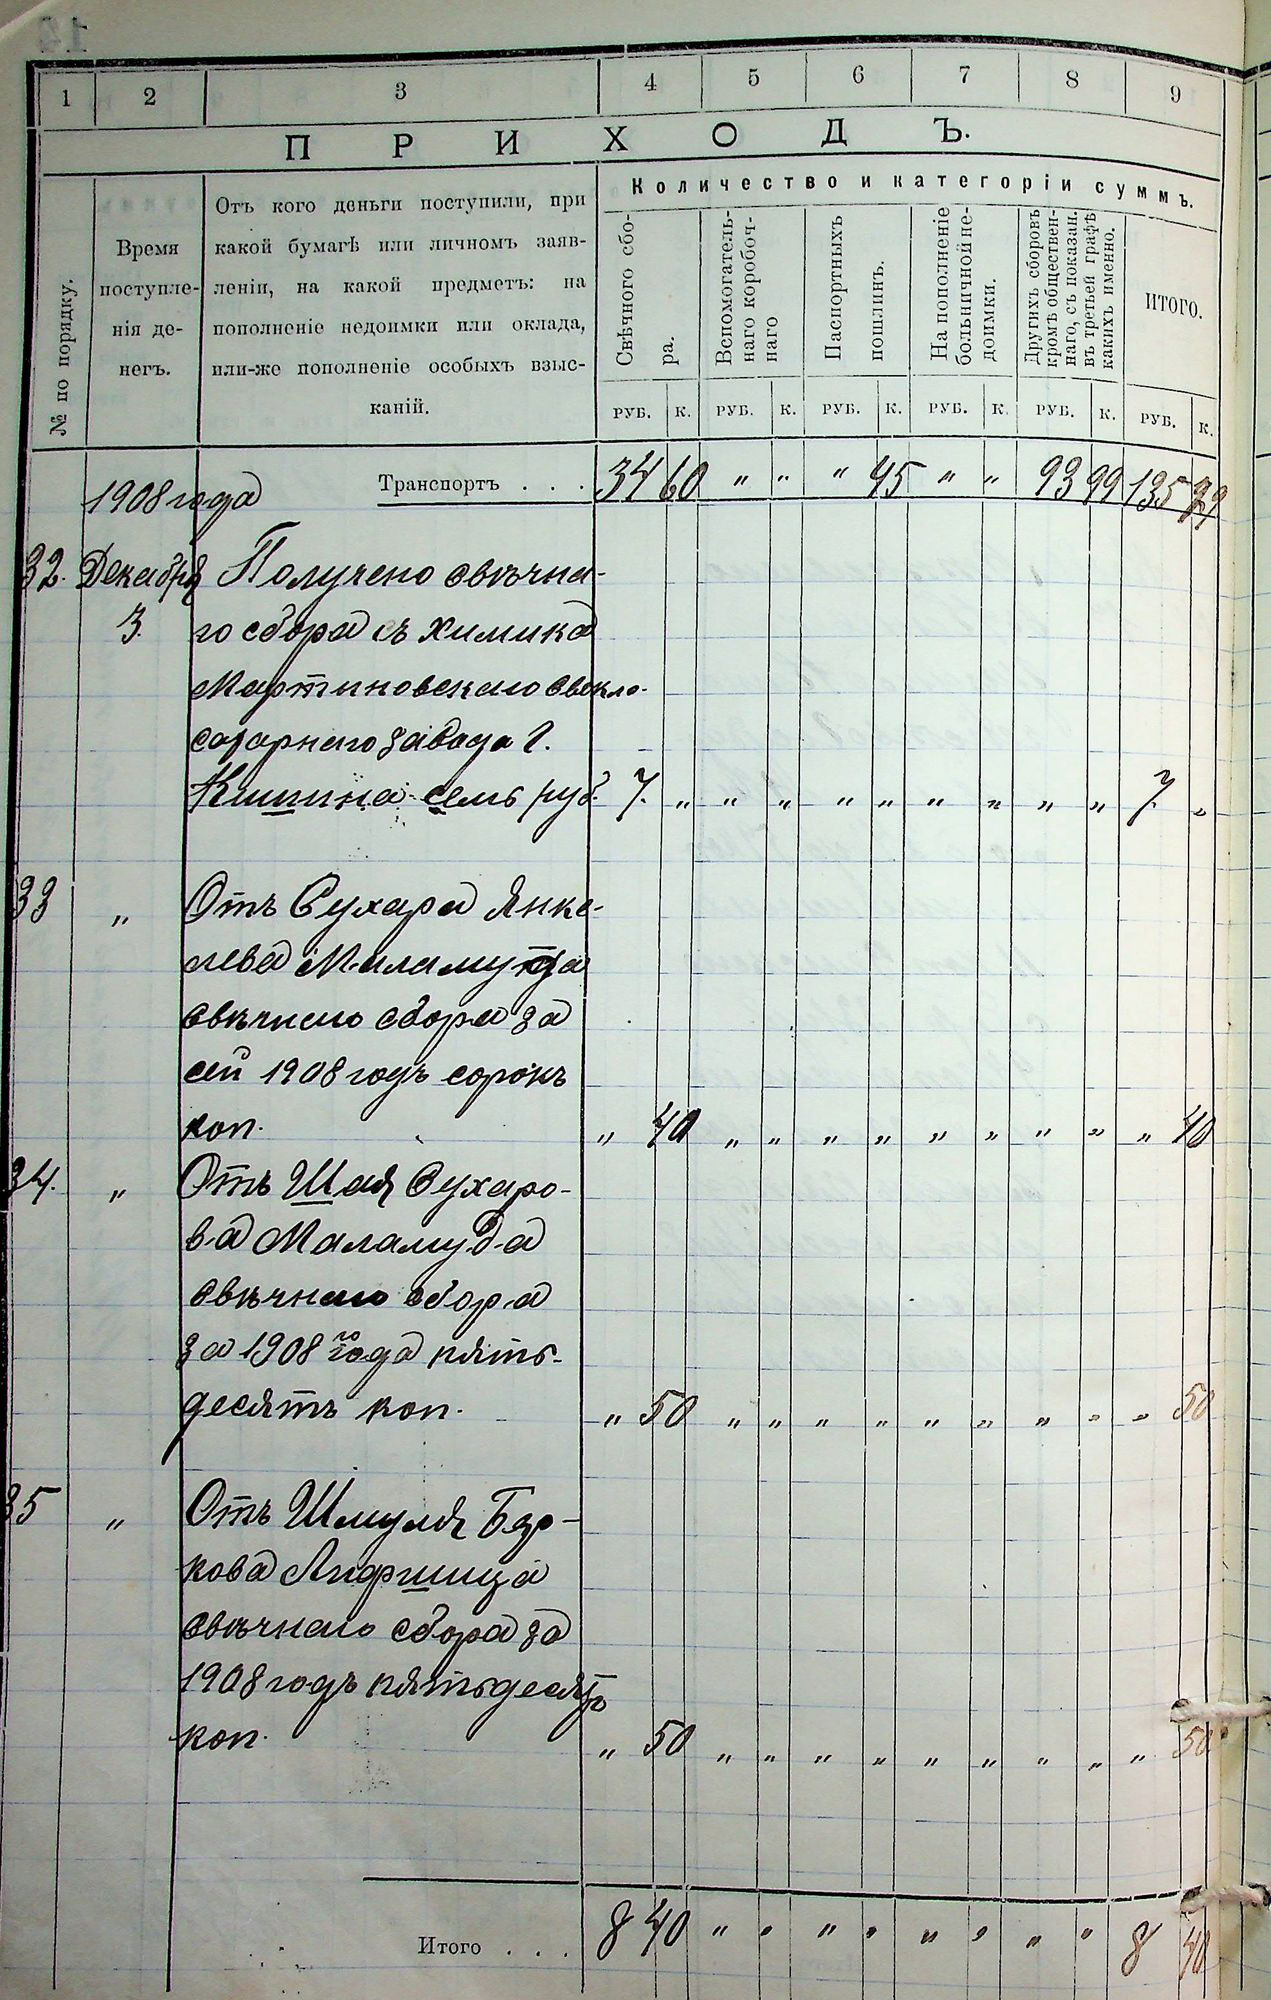 1 2 3 4 5 6 7 8 9
ПРИХОДЪ.
№ по порядку.
Время
поступле-
нія де-
негъ.
Отъ кого деньги поступили, при
какой бумагѣ или личномъ заяв-
леніи, на какой предметъ: на
пополненіе недоимки или оклада,
или-же пополненіе особыхъ взыс-
каній.
Количество и категоріи суммъ.
Свѣчного сбо-
ра.
Вспомогатель-
наго коробоч-
наго
Паспортныхъ
пошлинъ.
На пополненіе
больничной не-
доимки.
Другихъ сборовъ
кромѣ обществен-
наго, съ показан.
въ третьей графѣ
какихъ именно.
ИТОГО.
РУБ. К. РУБ. К. РУБ. К. РУБ. К. РУБ. К. РУБ. К.
1908 года Транспортъ . . . 34 60 " " " 45 " " 93 99 135
32. Декабря Получено свѣчна-
3. го сбора съ химика
Мартиновскаго свекло-
сахарнаго завода Г.
Кишина семь руб. 7. " " " " " " " " " 7. "
33 " Отъ Сухара Янке-
лева Маламуда
свѣчнаго сбора за
сей 1908 годъ сорокъ
коп. " 40 " " " " " " " " " 40
34. " Отъ Шая Сухаро-
ва Маламуда
свѣчнаго сбора
за 1908 года пять-
десятъ коп. " 50 " " " " " " " " " 50
35 " Отъ Шмуля Бер-
кова Лифшица
свѣчнаго сбора за
1908 годъ пятьдесятъ
коп. " 50 " " " " " " " " " 50
Итого . . . 8 40 " " " " " " " " 8 40